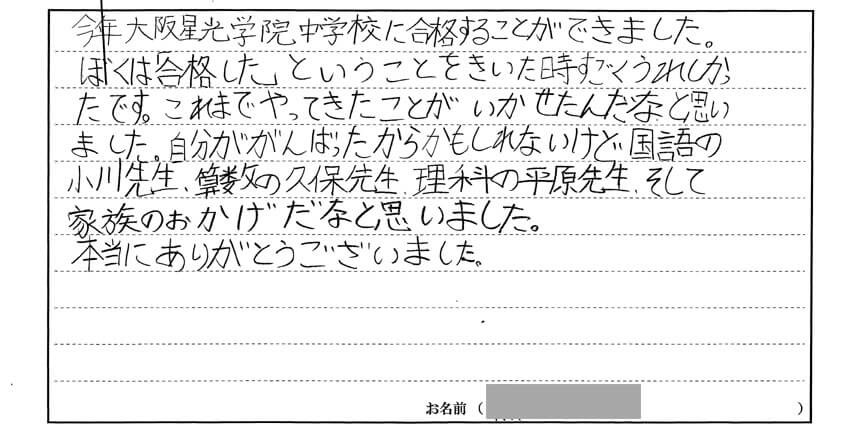 今年大阪星光学院中学校に合格することができました。
ぼくは「合格した」ということをきいた時すごくうれしかっ
たです。これまでやってきたことがいかせたんだなと思い
ました。自分ががんばったからかもしれないけど国語の
小川先生、算数の久保先生、理科の平原先生、そして
家族のおかげだなと思いました。
本当にありがとうございました。
お名前（ ）